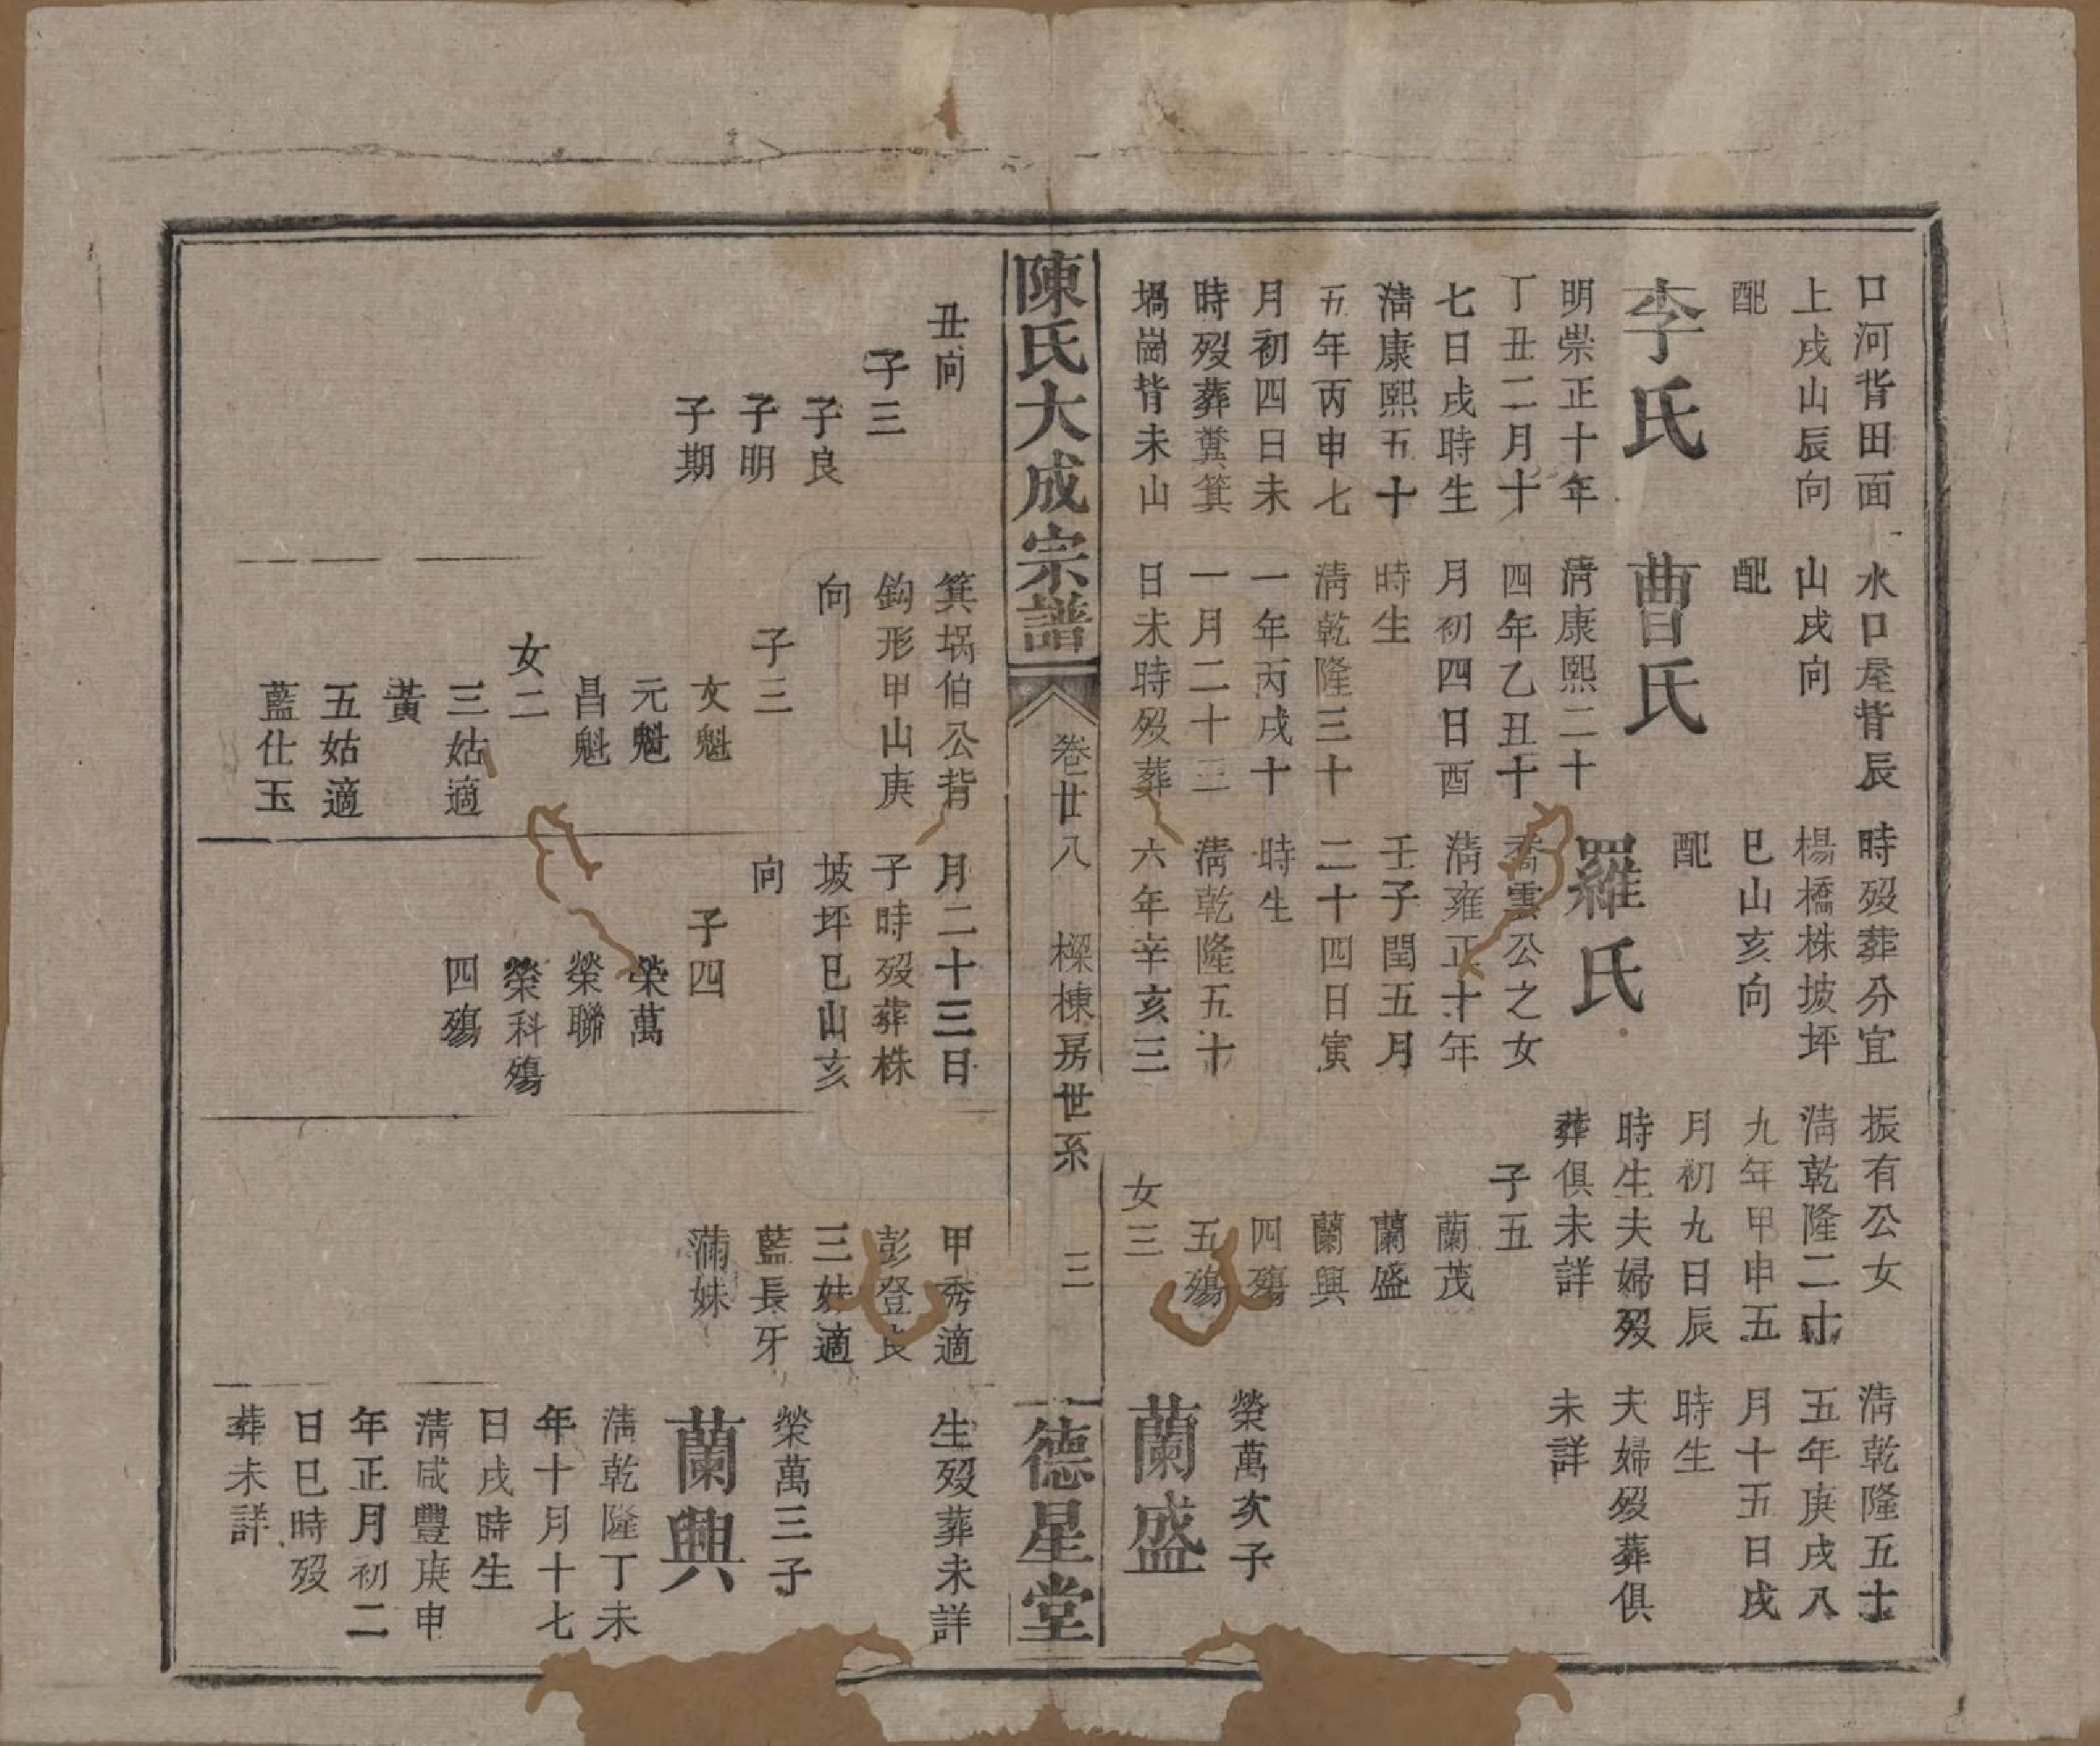 口河背田面
上戌山辰向
配
李氏
明崇正十年
丁丑二月十
七日戌時生
淸康熙五十
五年丙申七
月初四日未
時歿葬糞箕
堝崗背未山
水口屋背辰
山戌向
配
曹氏
淸康熙二十
四年乙丑十
月初四日酉
時生
淸乾隆三十
一年丙戌十
一月二十三
日未時歿葬
時歿葬分宜
楊橋株坡坪
巳山亥向
配
羅氏
喬雲公之女
淸雍正十年
壬子閏五月
二十四日寅
時生
淸乾隆五十
六年辛亥三
振有公女
淸乾隆二十
九年甲申五
月初九日辰
時生夫婦歿
葬俱未詳
子五
蘭茂
蘭盛
蘭興
四殤
五殤
女三
淸乾隆五十
五年庚戌八
月十五日戌
時生
夫婦歿葬俱
未詳
榮萬次子
蘭盛
陳氏大成宗譜
卷廿八
樑棟房世系
三
德星堂
丑向
子三
子良
子明
子期
箕堝伯公背
鈎形甲山庚
向
子三
文魁
元魁
昌魁
女二
三姑適
黃
五姑適
藍仕玉
月二十三日
子時歿葬株
坡坪巳山亥
向
子四
榮萬
榮聯
榮科殤
四殤
甲秀適
彭登良
三妹適
藍長牙
滿妹
生歿葬未詳
榮萬三子
蘭興
淸乾隆丁未
年十月十七
日戌時生
淸咸豐庚申
年正月初二
日巳時歿
葬未詳